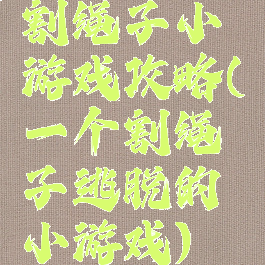 割绳子小
游戏攻略(
一个割绳
子逃脱的
小游戏)